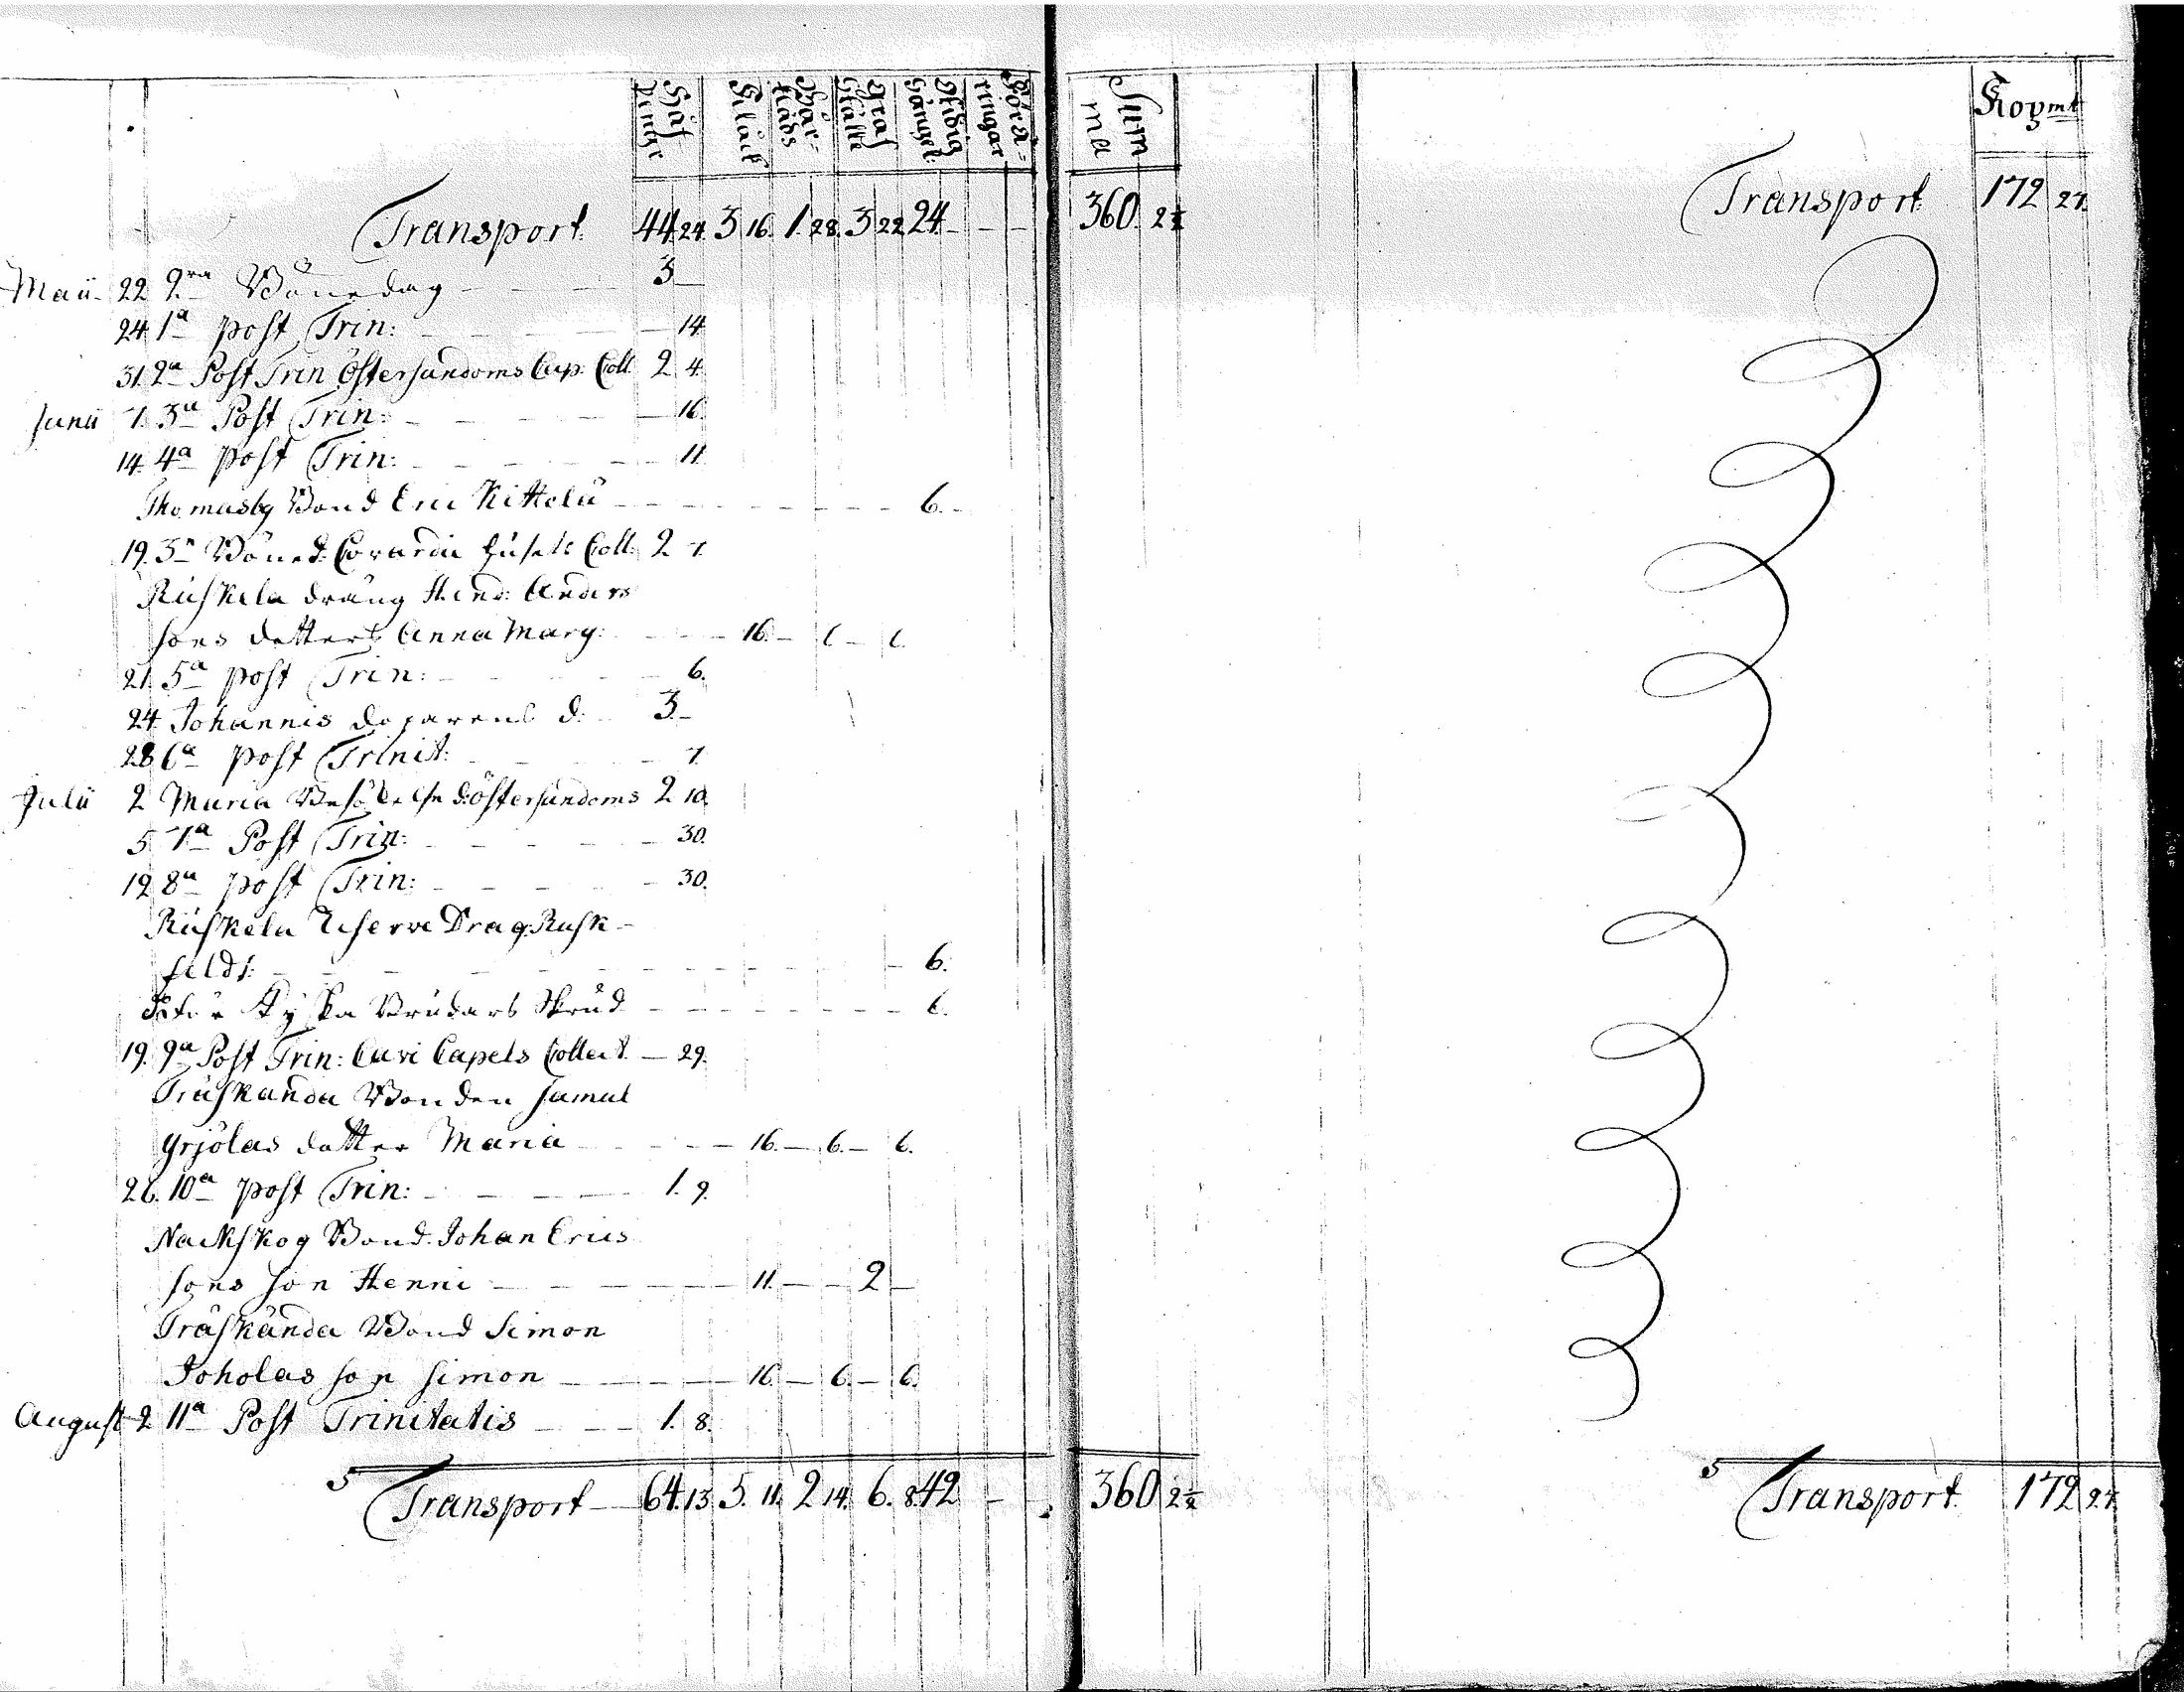 Håf Penge Kiläck Wår- Kläds Graf Ställe Stdig Gångel: Föra- ringar Sum ma Kopmt
Transport 44 24. 3 16. 1. 28. 3 22 24. - - - 360. 2½ Transport 172 27.
Maii 22 2ra Bönedag 3
24 1a post Trin: 14
31. 2a Post Trin Östersundoms Cap: Coll. 2 4.
Junii 7. 3a Post Trin: 16.
14. 4a post Trin: 11.
Thomasby Bond Eric Kittelä 6.
19. 3a Böned: Coll: 2 7.
Ruskela dräng Hend: Anders
sons dotters Anna Marg: 16. 6 6.
21. 5a post Trin: 6.
24. Johannis d: 3
28 6a post Trinit: 7.
Julii 2 Maria Besökelse d: Östersundoms 2 10.
5 7a Post Trin: 30.
12 8a post Trin: 30.
Ruskela Reserve Drag. Rusk-
feldt: 6.
Tyska Brudars Skrud 6.
19. 9a Post Trin: Capels Collect. 29.
Träskanda Bonden Samul
Grjolas dotter Maria 16. 6. 6.
26. 10a post Trin: 1. 9.
Nackskog Bond. Johan Erics
sons son Henric 11. 2
Träskända Bond Simon
Joholas son Simon 16. 6. 6.
August 2 11a Post Trinitatis 1. 8.
Transport 64. 13. 5. 11. 2 14. 6. 8. 42 - - 360 2½ Transport 172 27.